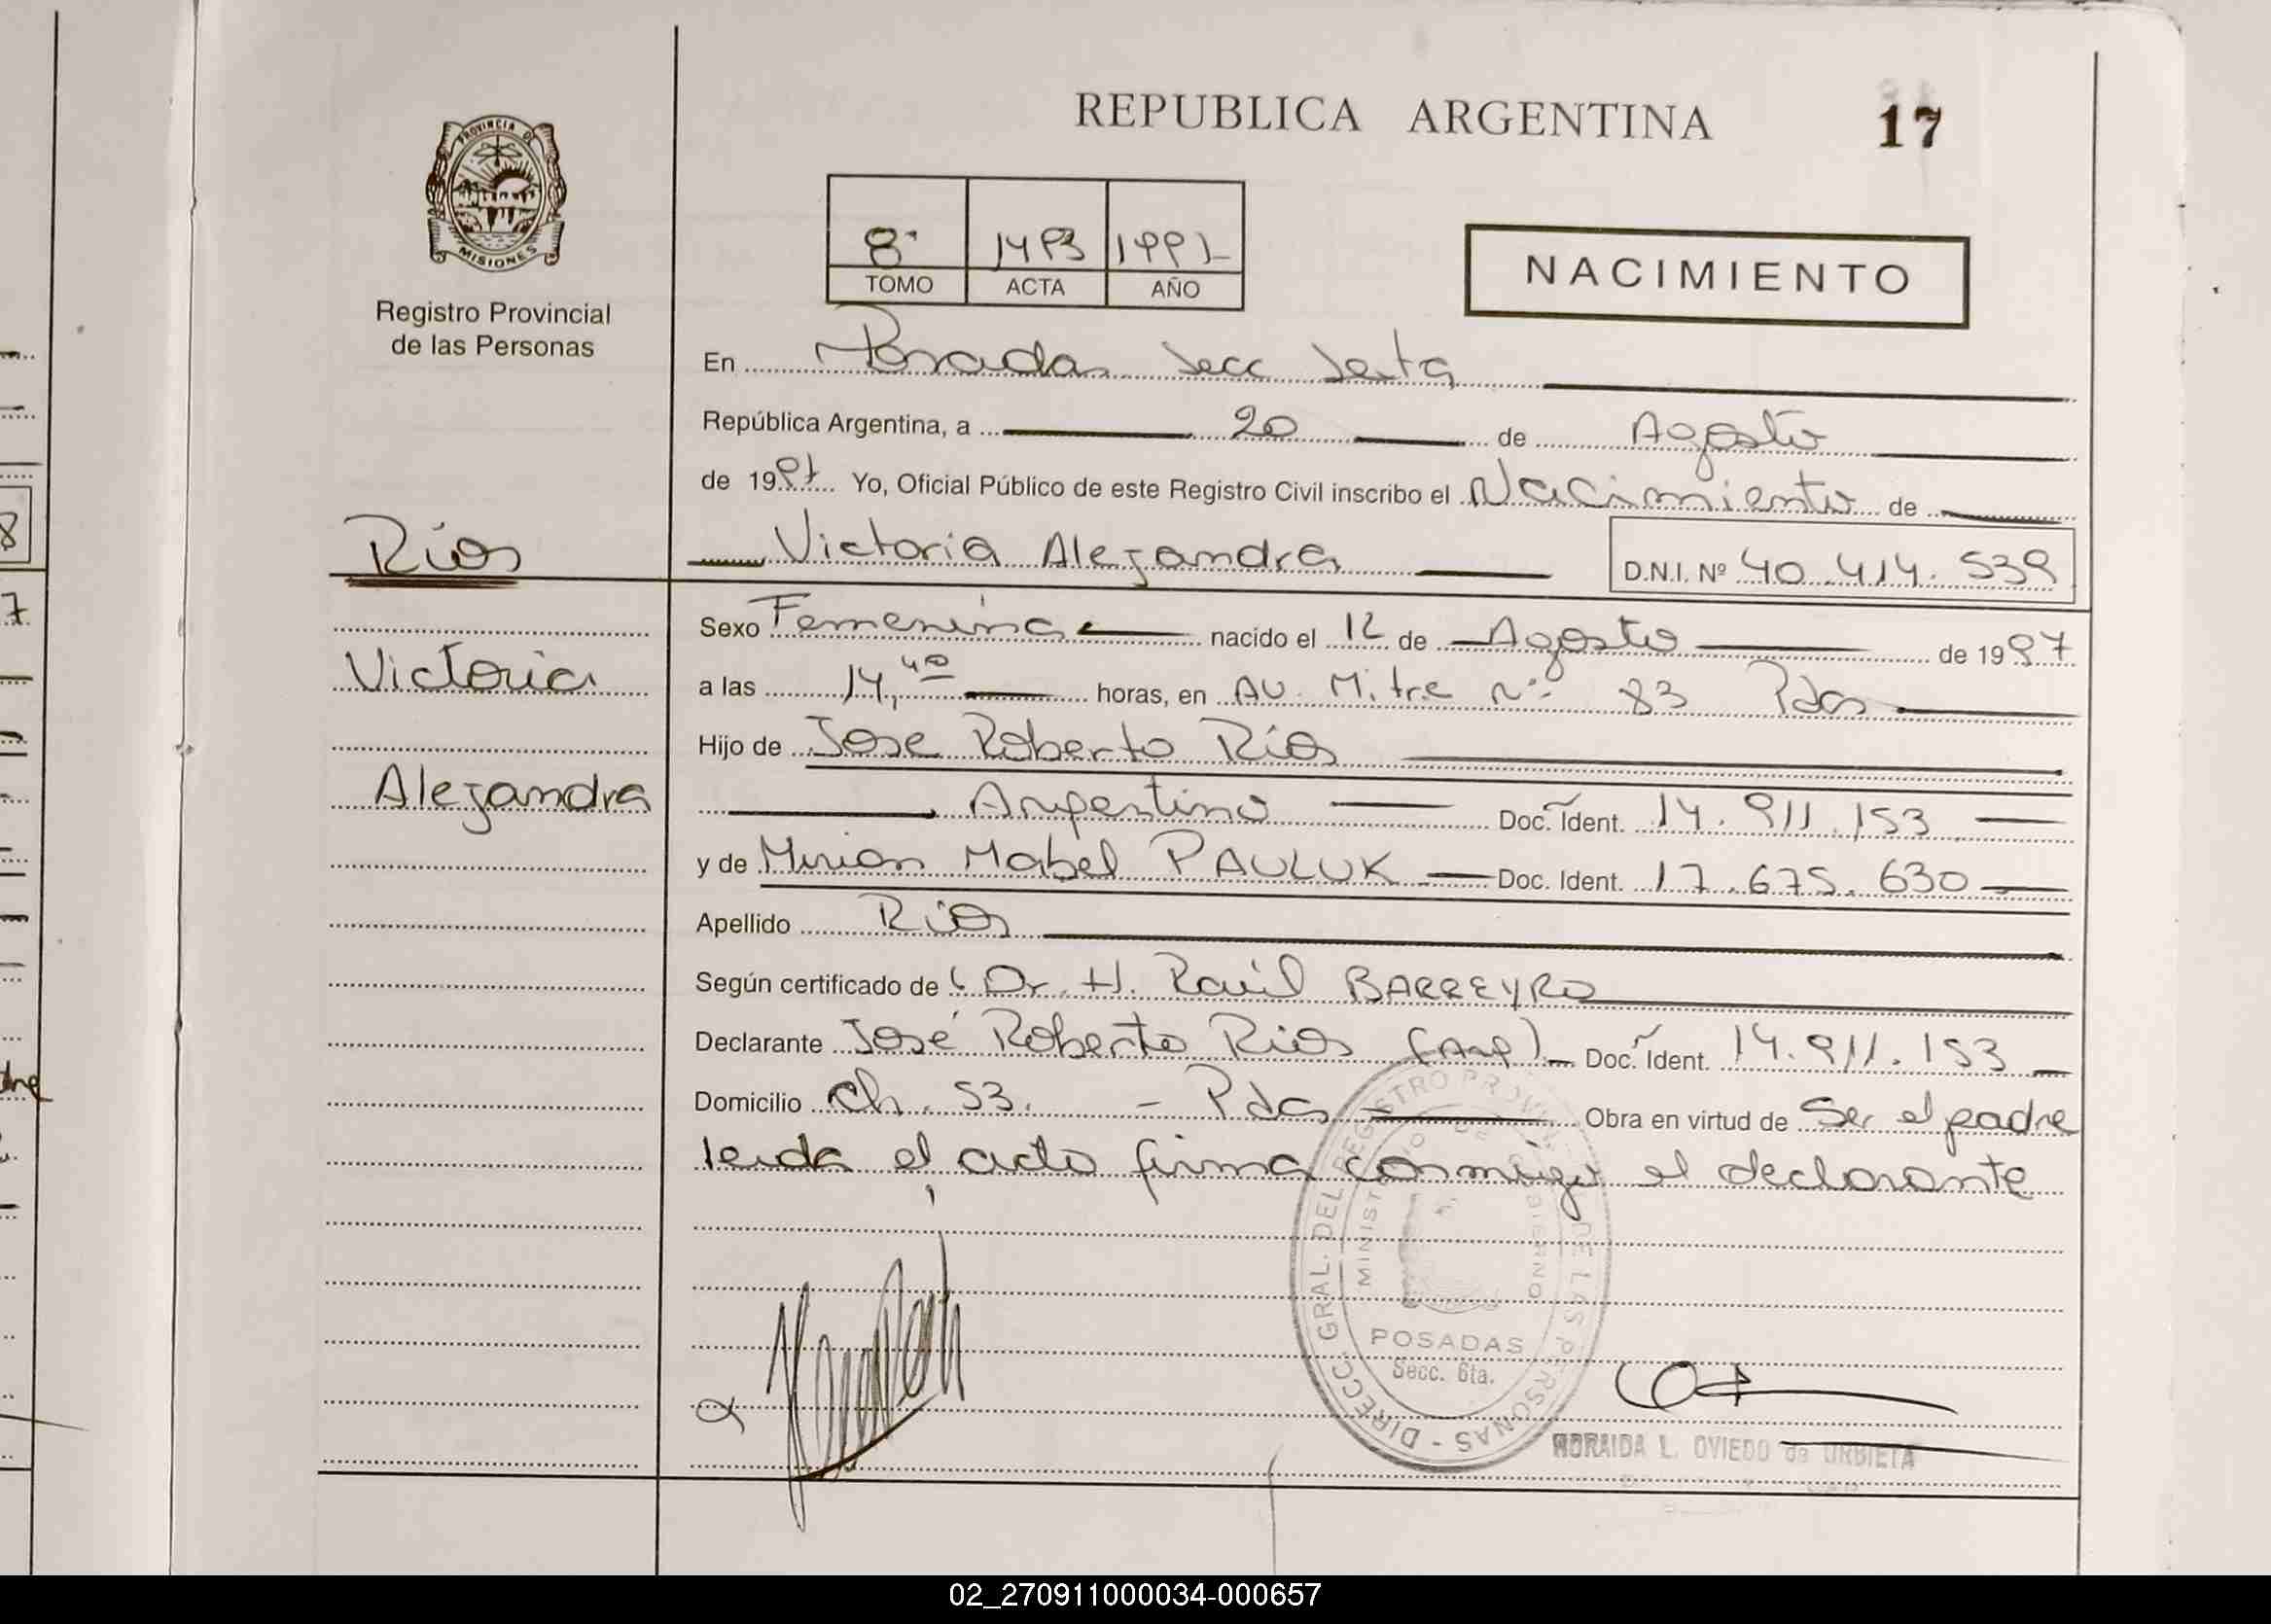 REPUBLICA ARGENTINA
17
PROVINCIA DE
MISIONES
Registro Provincial
de las Personas
8º 1493 1997
TOMO ACTA AÑO
NACIMIENTO
En Posadas Secc Sexta
República Argentina, a 20 de Agosto
de 1997 Yo, Oficial Público de este Registro Civil inscribo el Nacimiento de
Victoria Alejandra D.N.I. Nº 40.414.539
Ríos
Victoria
Alejandra
Sexo Femenina nacido el 12 de Agosto de 1997
a las 14,40 horas, en AV. Mitre Nº 83 Pdas
Hijo de Jose Roberto Ríos
Argentino Doc. Ident. 14.911.153
y de Mirian Mabel PAULUK Doc. Ident. 17.675.630
Apellido Ríos
Según certificado de Dr. H. Raúl BARREYRO
Declarante José Roberto Ríos (Arg) Doc. Ident. 14.911.153
Domicilio Ch. 53. - Pdas Obra en virtud de Ser el padre
leida el acta firma conmigo el declarante
DIRECC. GRAL. DEL REGISTRO PROVINCIAL DE LAS PERSONAS -
MINISTERIO DE GOBIERNO
POSADAS
Secc. 6ta.
L. OVIEDO de URBIETA
02_270911000034-000657